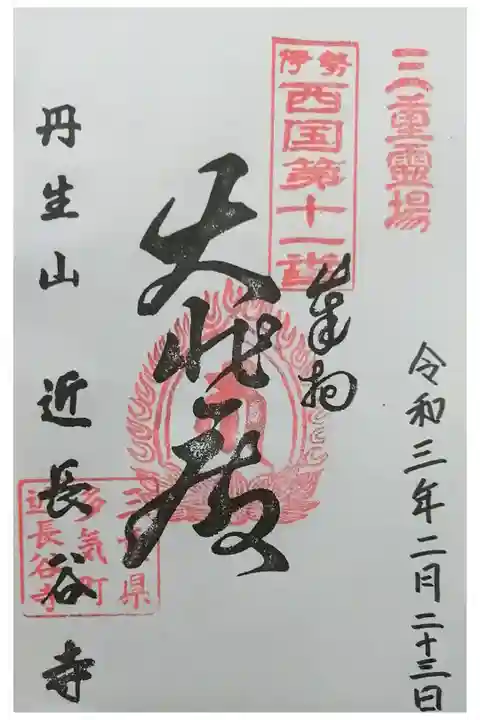 三重霊場
伊勢
西国第十一番
奉拝
令和三年二月二十三日
大悲殿
丹生山 近長谷寺
三重県
多気町
近長谷寺